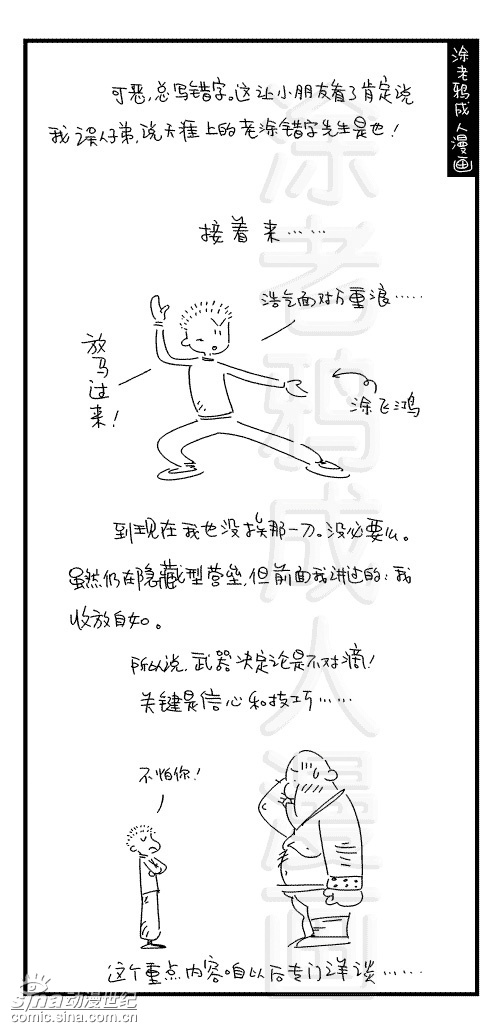 涂老鸦成人漫画
可恶,总写错字。这让小朋友看了肯定说
我误人子弟,说天涯上的老涂错字先生是也!
接着来……
浩气面对万重浪……
放马过来!
涂飞鸿
到现在我也没挨那一刀。没必要么。
虽然仍在隐藏型营垒,但前面我讲过的:我
收放自如。
所以说,武器决定论是不对滴!
关键是信心和技巧……
不怕你!
这个重点内容咱以后专门详谈……
涂老鸦成人漫画
sina动漫世纪
comic.sina.com.cn